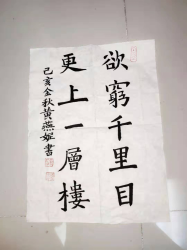 欲窮千里目
更上一層樓
己亥金秋黄燕姬書